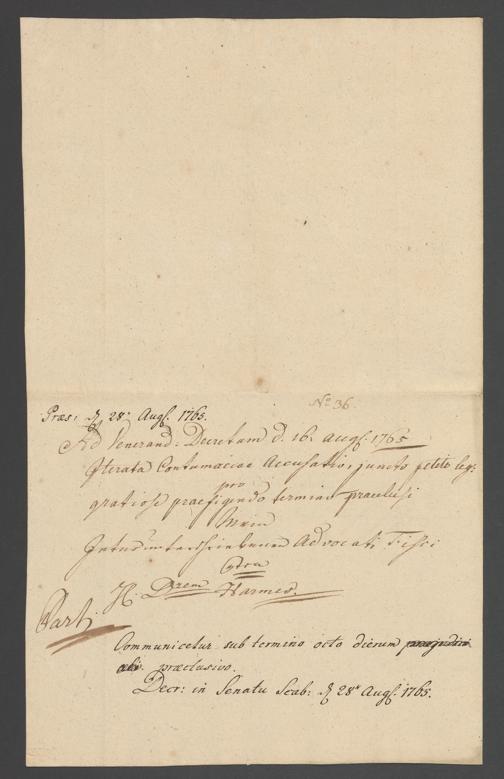 No 36.
Præs: d 28t Augs. 1765.
Ad Venerand: Decretum d. 16. augs. 1765
Iterata Contumaciae Accusatio, juncto petito leg:
pro
gratiose praefigendo termino praeclusi
Mein
Advocati Fisci
Ctra
H. Drem Harmes.
Part
Communicetur sub termino octo dierum præjudici
ali præclusivo.
Decr: in Senatu Scab: d 28t Augs. 1765.